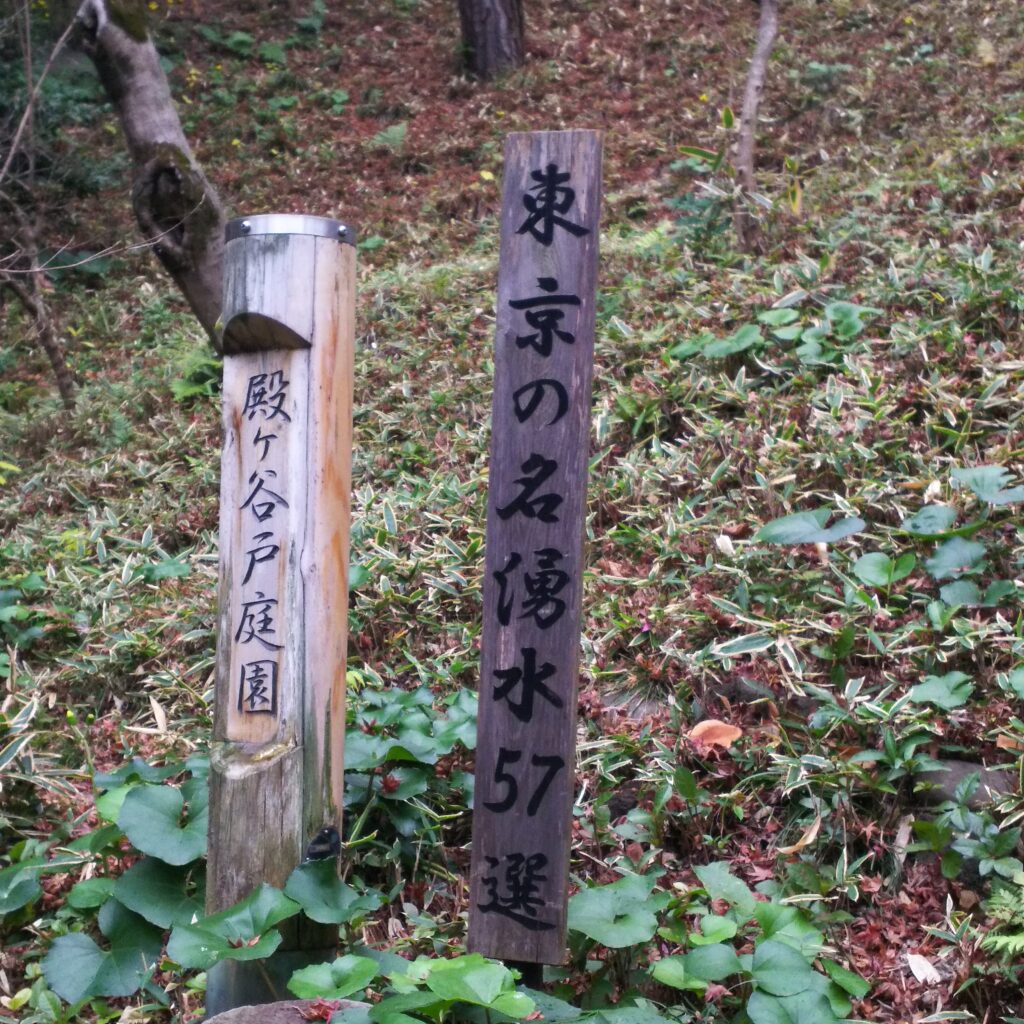 殿ヶ谷戸庭園
東京の名湧水57選